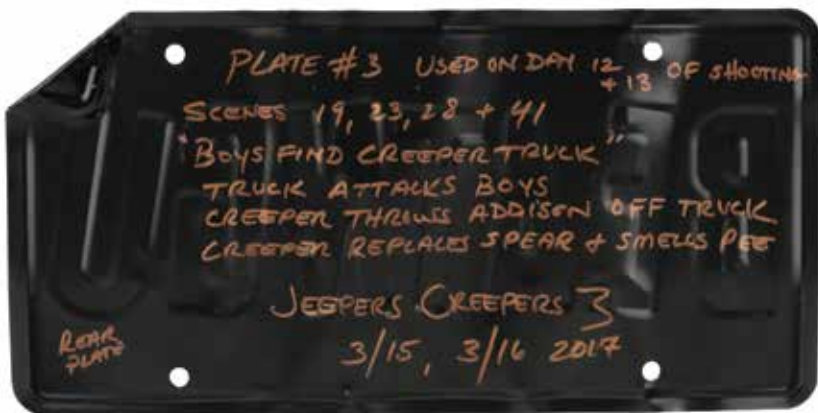 PLATE #3 USED ON DAY 12 + 13 OF SHOOTING
SCENES 19, 23, 28 + 41
"BOYS FIND CREEPER TRUCK"
TRUCK ATTACKS BOYS
CREEPER THROWS ADDISON OFF TRUCK
CREEPER REPLACES SPEAR & SMELLS PEE
JEEPERS CREEPERS 3
3/15, 3/16 2017
REAR
PLATE